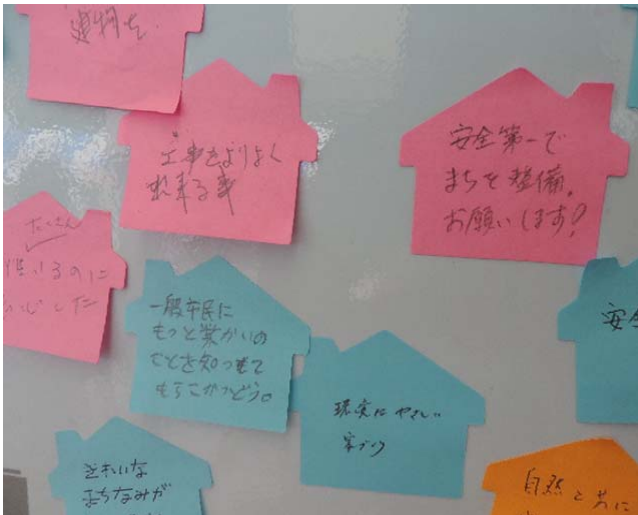 建物を
工事をよりよく
出来る事
安全第一で
まちを整備、
お願いします!
たくさん
るのに
した
一般市民に
もっと業かいの
ことを知ってもて
もらうかつどう。
環境にやさしい
家づくり
きれいな
まちなみが
安全
自然と共に